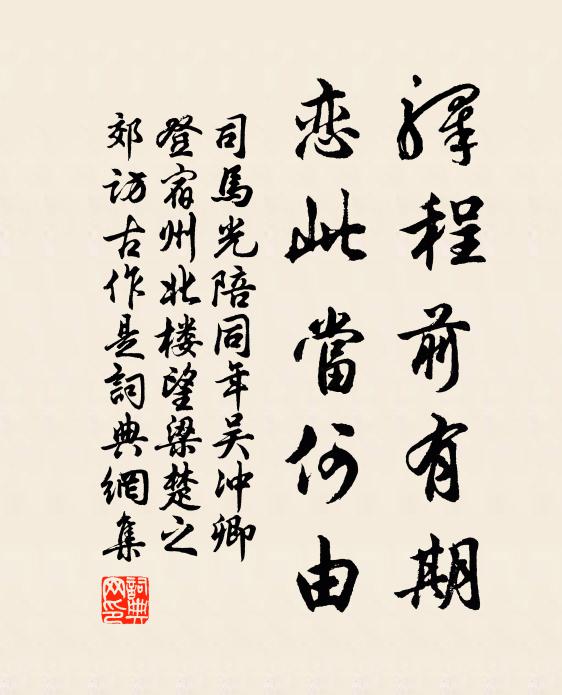 驛程前有期
戀此當何由
司馬光陪同年吴沖卿
登宿州北楼望梁楚之
郊访古作是詞典網集
詞典
网印